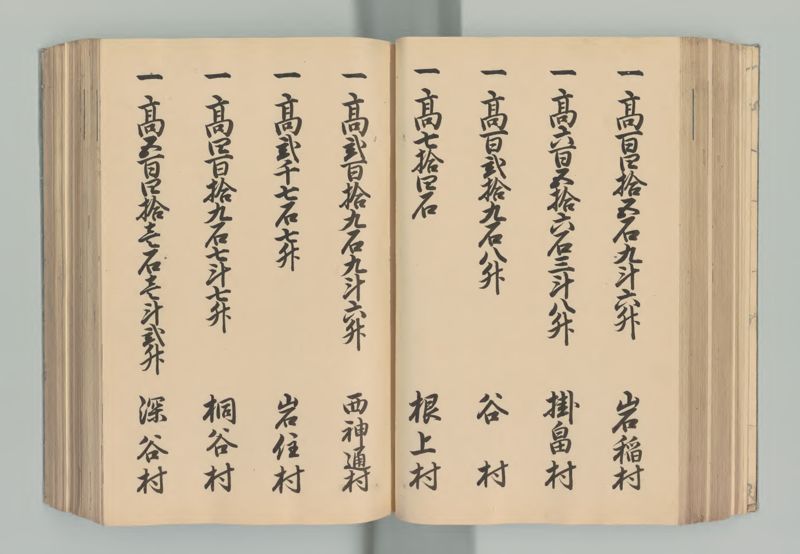 一高百四拾五石九斗六升 岩稲村
一高六百五拾六石三斗八升 掛畠村
一高百弐拾九石八升 谷村
一高七拾四石 根上村
一高弐百拾九石九斗六升 西神通村
一高弐千七石七升 岩住村
一高四百拾九石七斗七升 桐谷村
一高五百四拾壱石壱斗弐升 深谷村